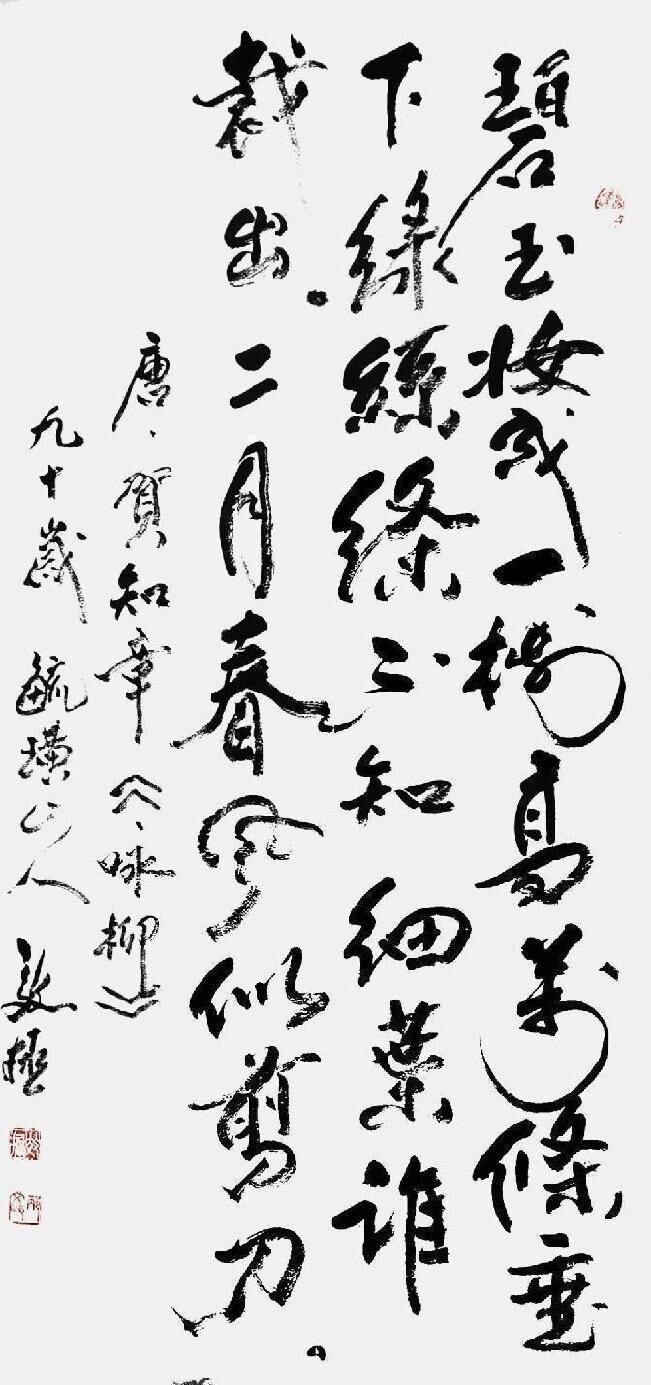 碧玉妝成一樹高萬條垂
下綠絲絛不知細葉誰
裁出。二月春風似剪刀。
唐、賀知章《咏柳》
九十歲 毓璜山人